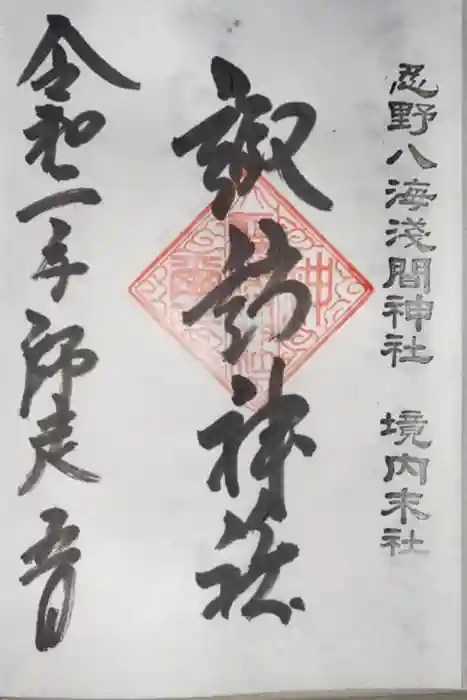 忍野八海淺間神社　境内末社
諏訪神社
令和二年師走吉日